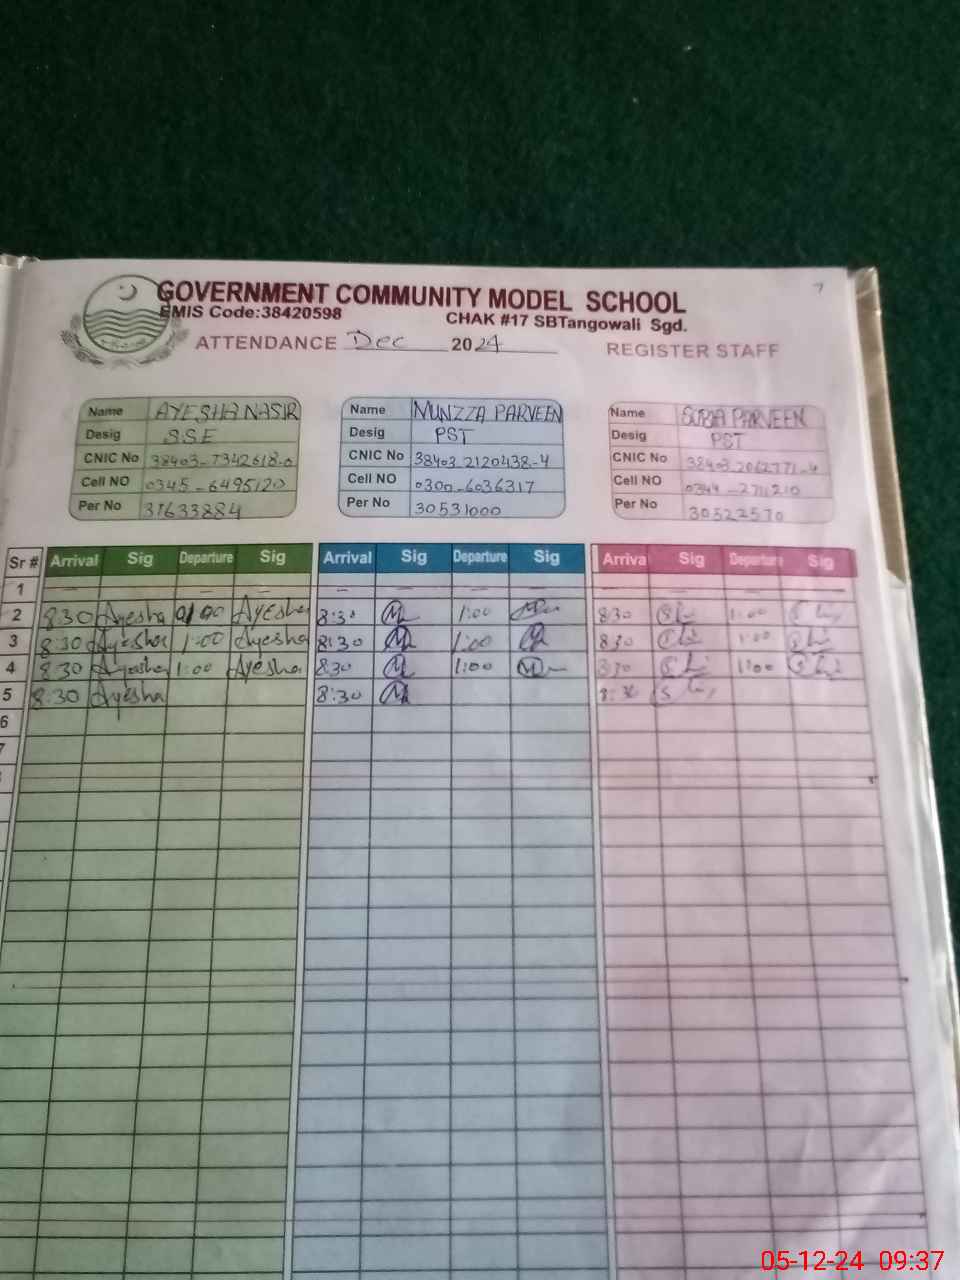 GOVERNMENT COMMUNITY MODEL SCHOOL
EMIS Code:38420598 CHAK #17 SBTangowali Sgd.
ATTENDANCE Dec 2024 REGISTER STAFF
Name AYESHA NASIR Name MUNZZA PARVEEN Name SOBIA PARVEEN
Desig S.S.E Desig PST Desig PST
CNIC No 38403-7342618-0 CNIC No 38403-2120438-4 CNIC No 38403-2062771-4
Cell NO 0345-6495120 Cell NO 0300-6036317 Cell NO 0344-2711210
Per No 31633884 Per No 30531000 Per No 30522570
Sr # Arrival Sig Departure Sig Arrival Sig Departure Sig Arriva Sig Departure Sig
1 — — — — — — — — — — — —
2 8:30 Ayesha 01:00 Ayesha 8:30 1:00 8:30 1:00
3 8:30 Ayesha 1:00 Ayesha 8:30 1:00 8:30 1:00
4 8:30 Ayesha 1:00 Ayesha 8:30 1:00 8:30 1:00
5 8:30 Ayesha 8:30 8:30
6
7
05-12-24 09:37